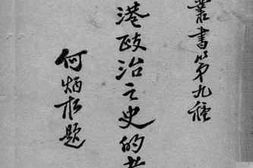 叢書第九種
港政治之史的
何炳松題